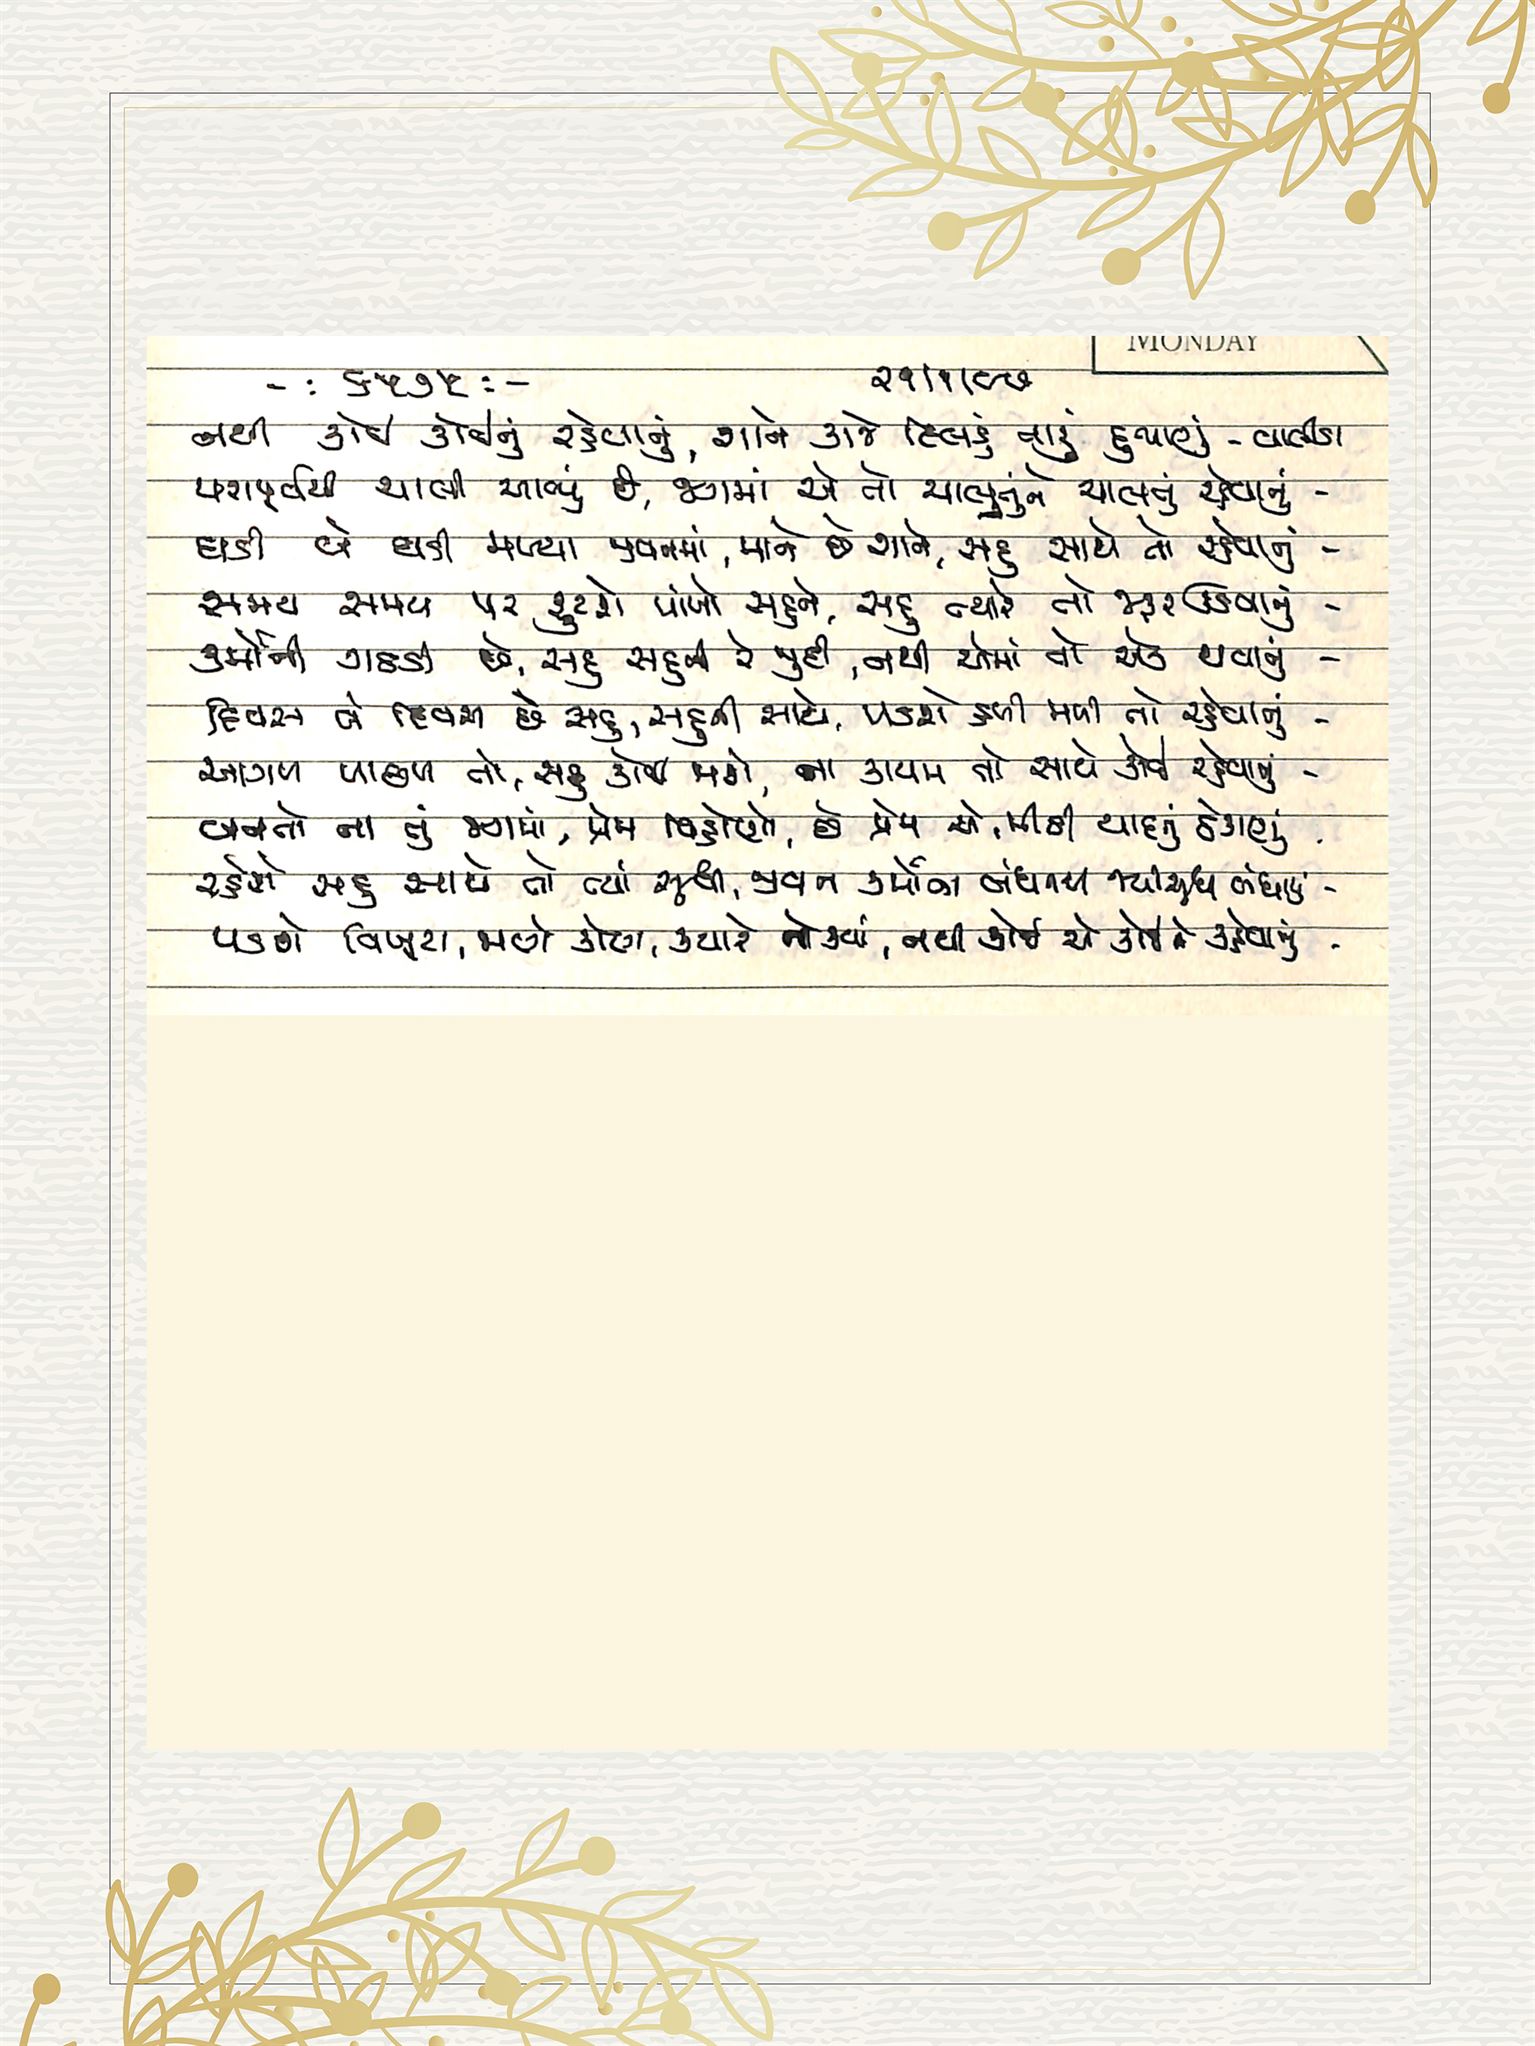 MONDAY
-: ૬૫૭૫ :- ૨૧/૧/૯૭
નથી કોઈ કોઈનું રહેવાનું, શાને કાજે દિલડું તારું દુભાણું - વાલીડા
પરાપૂર્વથી ચાલી આવ્યું છે, જગમાં એ તો ચાલ્યુંને ચાલતું રહેવાનું -
ઘડી બે ઘડી મળ્યા જીવનમાં, માને છે શાને, સહુ સાથે તો રહેવાનું -
સમય સમય પર ફુટશે પાંખો સહુને, સહુ ત્યારે તો જરૂર ઊડવાનું -
કર્મોની ગઠડી છે, સહુ સહુની રે જુદી, નથી એમાં તો એક થવાનું -
દિવસ બે દિવસ છે સહુ, સહુની સાથે, પડશે હળી મળી તો રહેવાનું -
આગળ પાછળ તો, સહુ કોઈ જાશે, ના કાયમ તો સાથે કોઈ રહેવાનું -
બનતો ના તું જગમાં, પ્રેમ વિહોણો, છે પ્રેમ એ, મીઠી યાદનું ઠેકાણું .
રહેશે સહુ સાથે તો ત્યાં સુધી, જીવન કર્મોના બંધનથી જ્યાંસુધી બંધાયું -
પડશે વિખૂટા, મળશે કોણ, ક્યારે તો ક્યાં, નથી કોઈ એ કોઈને કહેવાનું .